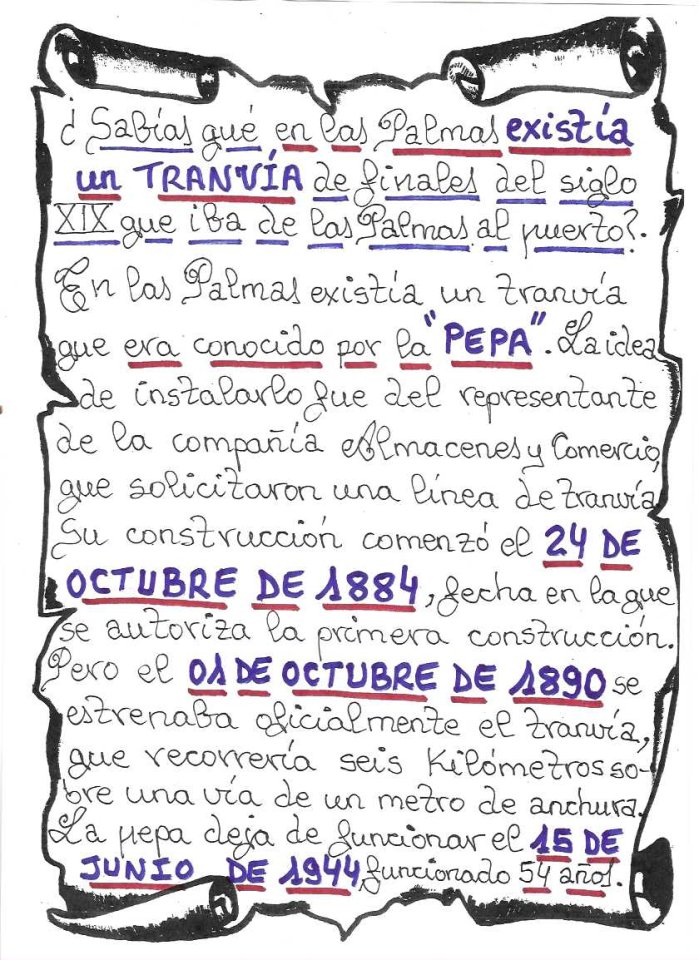 ¿Sabías qué en las Palmas existía
un TRANVÍA de finales del siglo
XIX que iba de las Palmas al puerto?.
En las Palmas existía un tranvía
que era conocido por la "PEPA". La idea
de instalarlo fue del representante
de la compañía Almacenes y Comercio,
que solicitaron una línea de tranvía
Su construcción comenzó el 24 DE
OCTUBRE DE 1884, fecha en la que
se autoriza la primera construcción.
Pero el 01 DE OCTUBRE DE 1890 se
estrenaba oficialmente el tranvía,
que recorrería seis Kilómetros so-
bre una vía de un metro de anchura.
La pepa deja de funcionar el 15 DE
JUNIO DE 1944, funcionado 54 años.